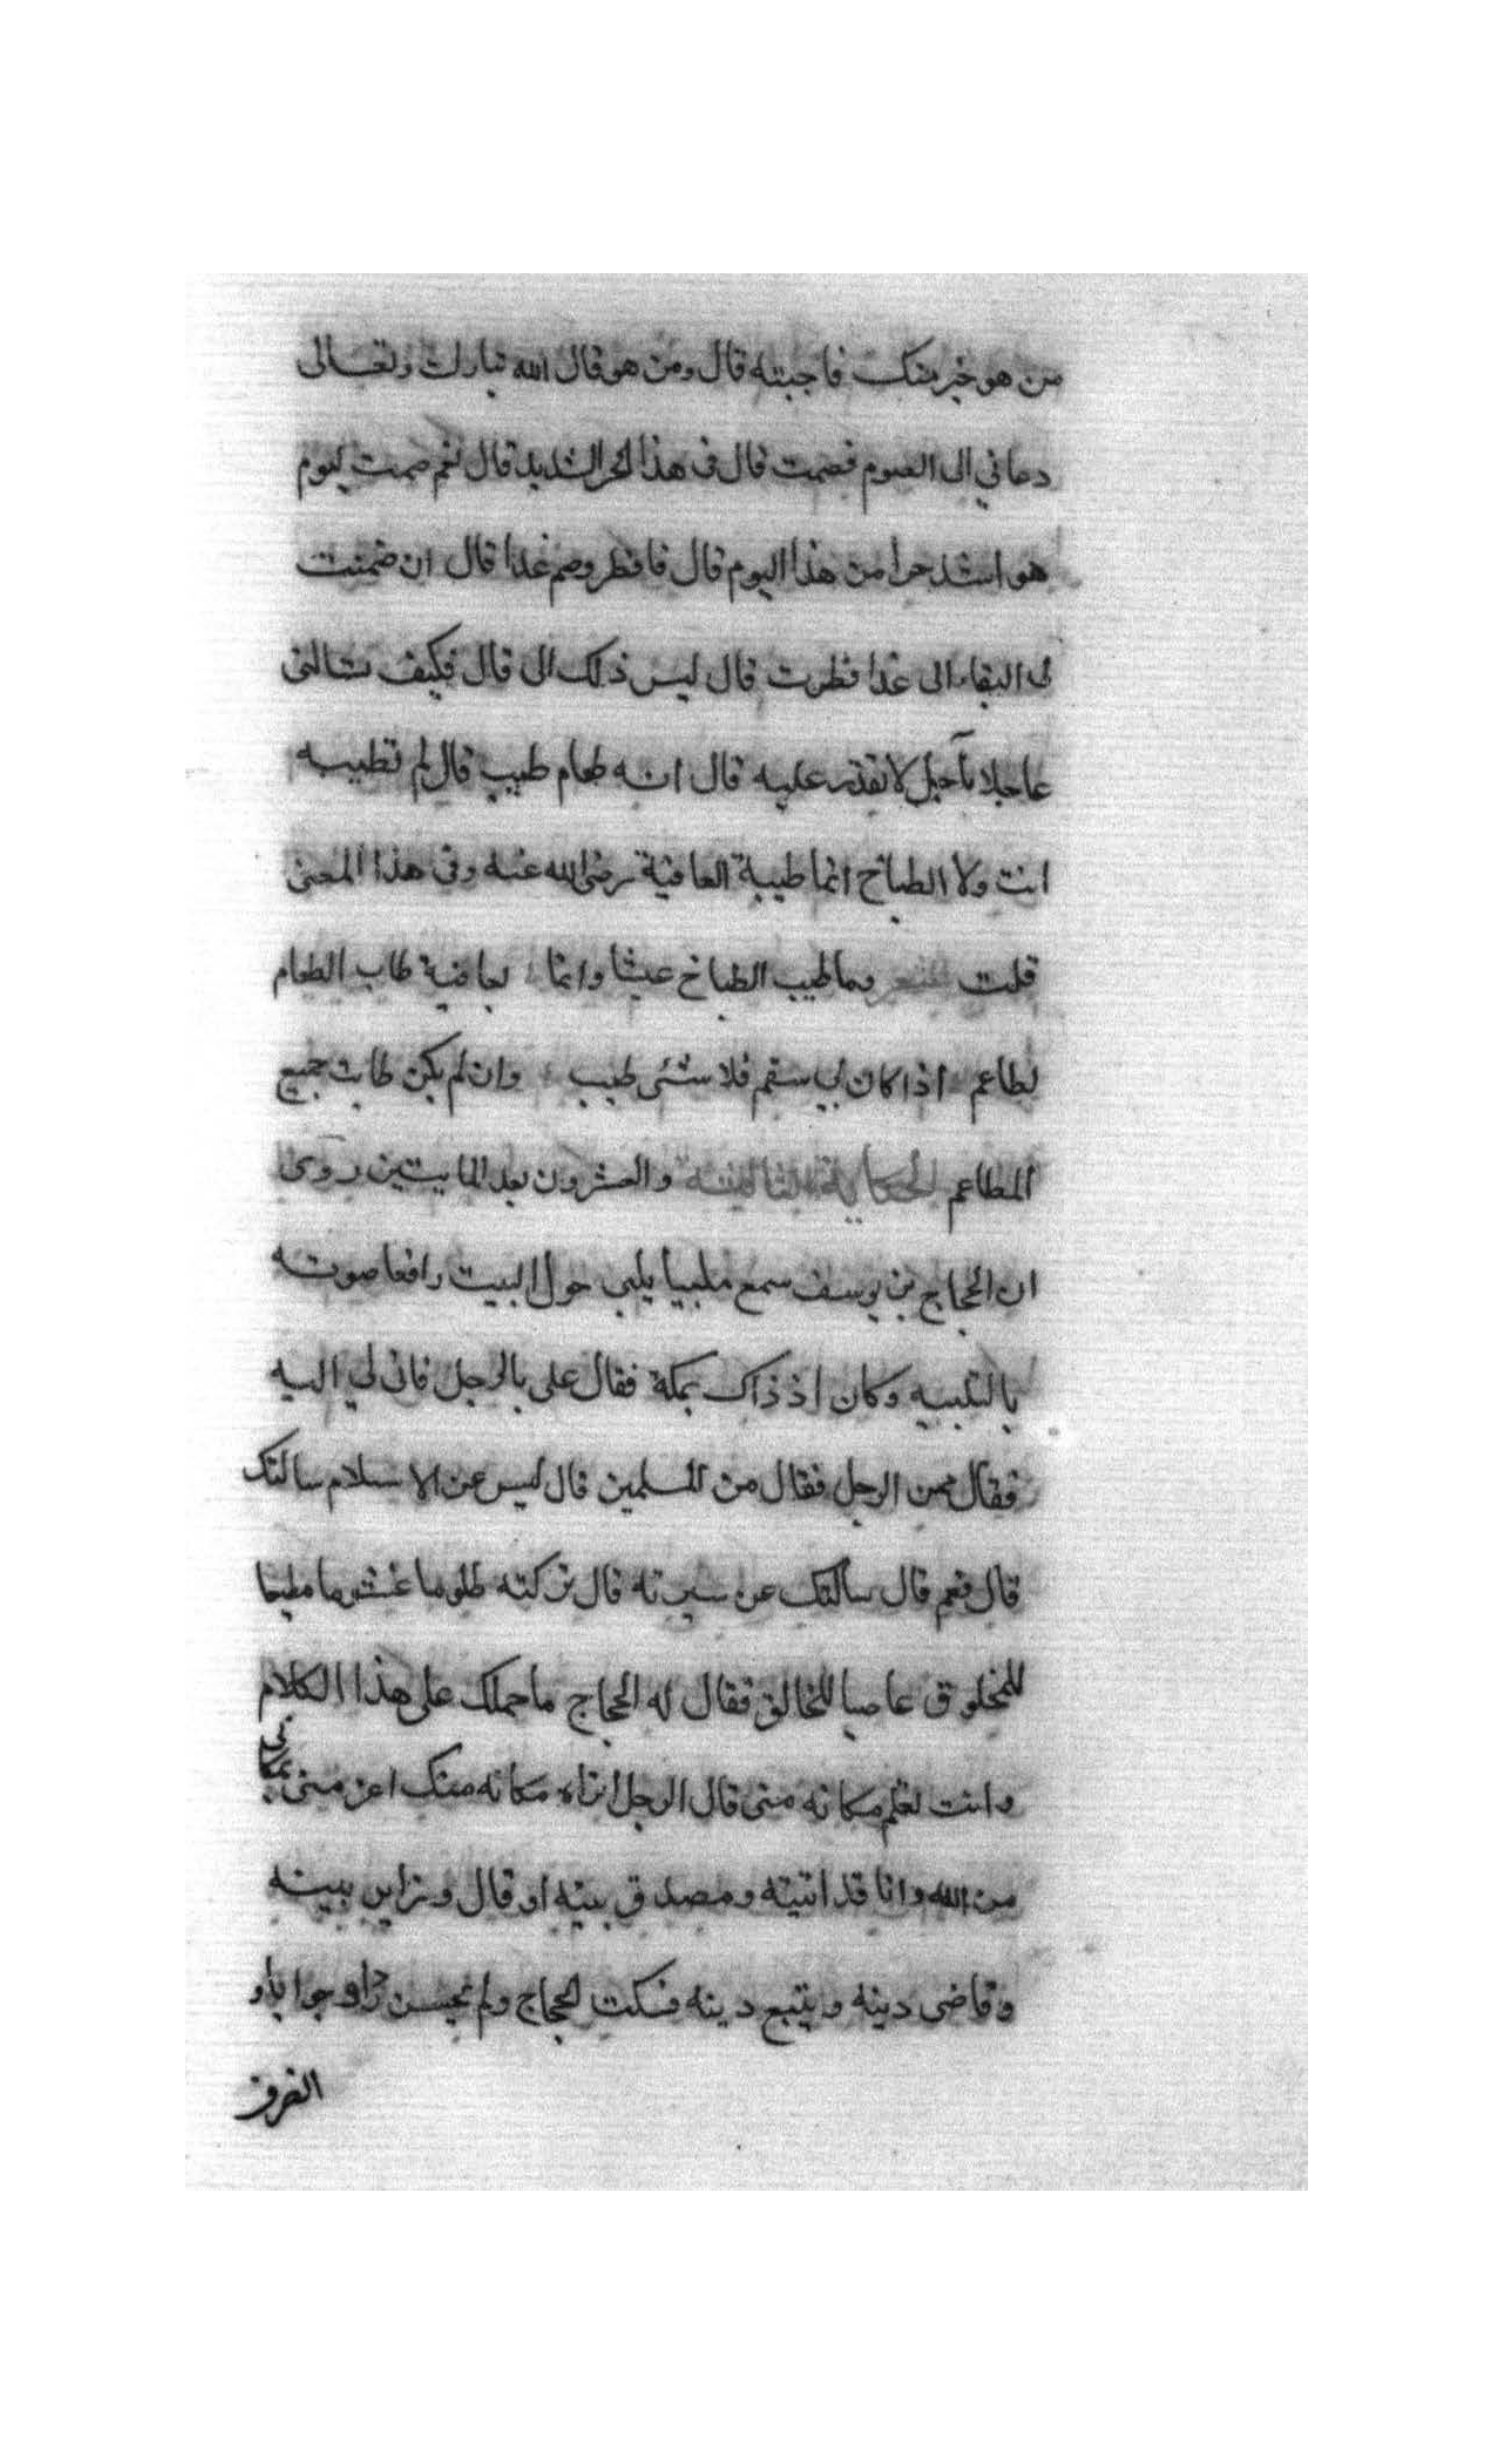 من هو خير منك فاجبته قال ومن هو قال الله تبارك وتعالى
دعاني الى الصوم فصمت قال في هذا الحر الشديد قال نعم صمت ليوم
هو اشد حرا من هذا اليوم قال فافطر وصم غدا قال ان ضمنت
لى البقاء الى غدا فطرت قال ليس ذلك الى قال فكيف تسالنى
عاجلا بآجل لا تقدر عليه قال انه طعام طيب قال لم تطيبه
انت ولا الطباخ انما طيبة العافية رضى الله عنه وفي هذا المعنى
قلت شعر وما طيب الطباخ عيشا وانما بعافية طاب الطعام
لطاعم اذا كان بي سقم فلا شئ طيب وان لم يكن طابت جميع
المطاعم الحكاية الثالثة والعشرون بعد المايتين روى
ان الحجاج بن يوسف سمع ملبيا يلبى حول البيت رافعا صوته
بالتلبيه وكان اذ ذاك بمكة فقال على بالرجل فاتى الي اليه
فقال ممن الرجل فقال من المسلمين قال ليس عن الاسلام سالتك
قال فعم قال سالتك عن سيرته قال تركته ظلوما غشوما مطيعا
للمخلوق عاصيا للخالق فقال له الحجاج ما حملك على هذا الكلام
وانت تعلم مكانه منى قال الرجل اتراه مكانه منك اعز منى بمكانى
من الله وانا قد اتيته ومصدق بيته او قال وزاير بيته
وقاضى دينه ويتبع دينه فسكت الحجاج ولم يحسن جوابا و